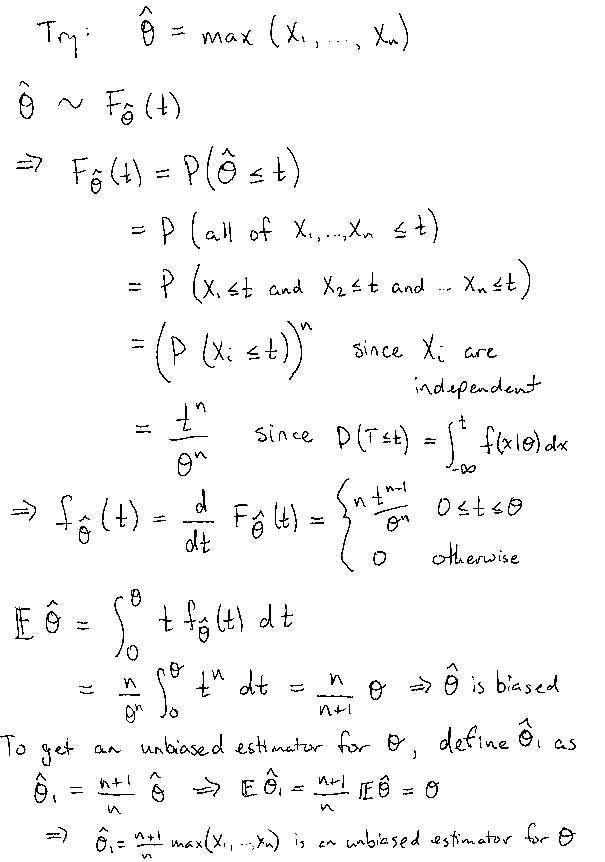 Try: θ̂ = max (X₁, ..., Xₙ)
θ̂ ~ F_θ̂(t)
⇒ F_θ̂(t) = P(θ̂ ≤ t)
= P (all of X₁, ..., Xₙ ≤ t)
= P (X₁ ≤ t and X₂ ≤ t and ... Xₙ ≤ t)
= (P (Xᵢ ≤ t))ⁿ since Xᵢ are
independent
= tⁿ/θⁿ since P(T ≤ t) = ∫_{-∞}^{t} f(x|θ) dx
⇒ f_θ̂(t) = d/dt F_θ̂(t) = { n tⁿ⁻¹/θⁿ 0 ≤ t ≤ θ
0 otherwise
𝔼 θ̂ = ∫₀^θ t f_θ̂(t) dt
= n/θⁿ ∫₀^θ tⁿ dt = n/(n+1) θ ⇒ θ̂ is biased
To get an unbiased estimator for θ, define θ̂₁ as
θ̂₁ = (n+1)/n θ̂ ⇒ 𝔼 θ̂₁ = (n+1)/n 𝔼 θ̂ = θ
⇒ θ̂₁ = (n+1)/n max(X₁, ..., Xₙ) is an unbiased estimator for θ